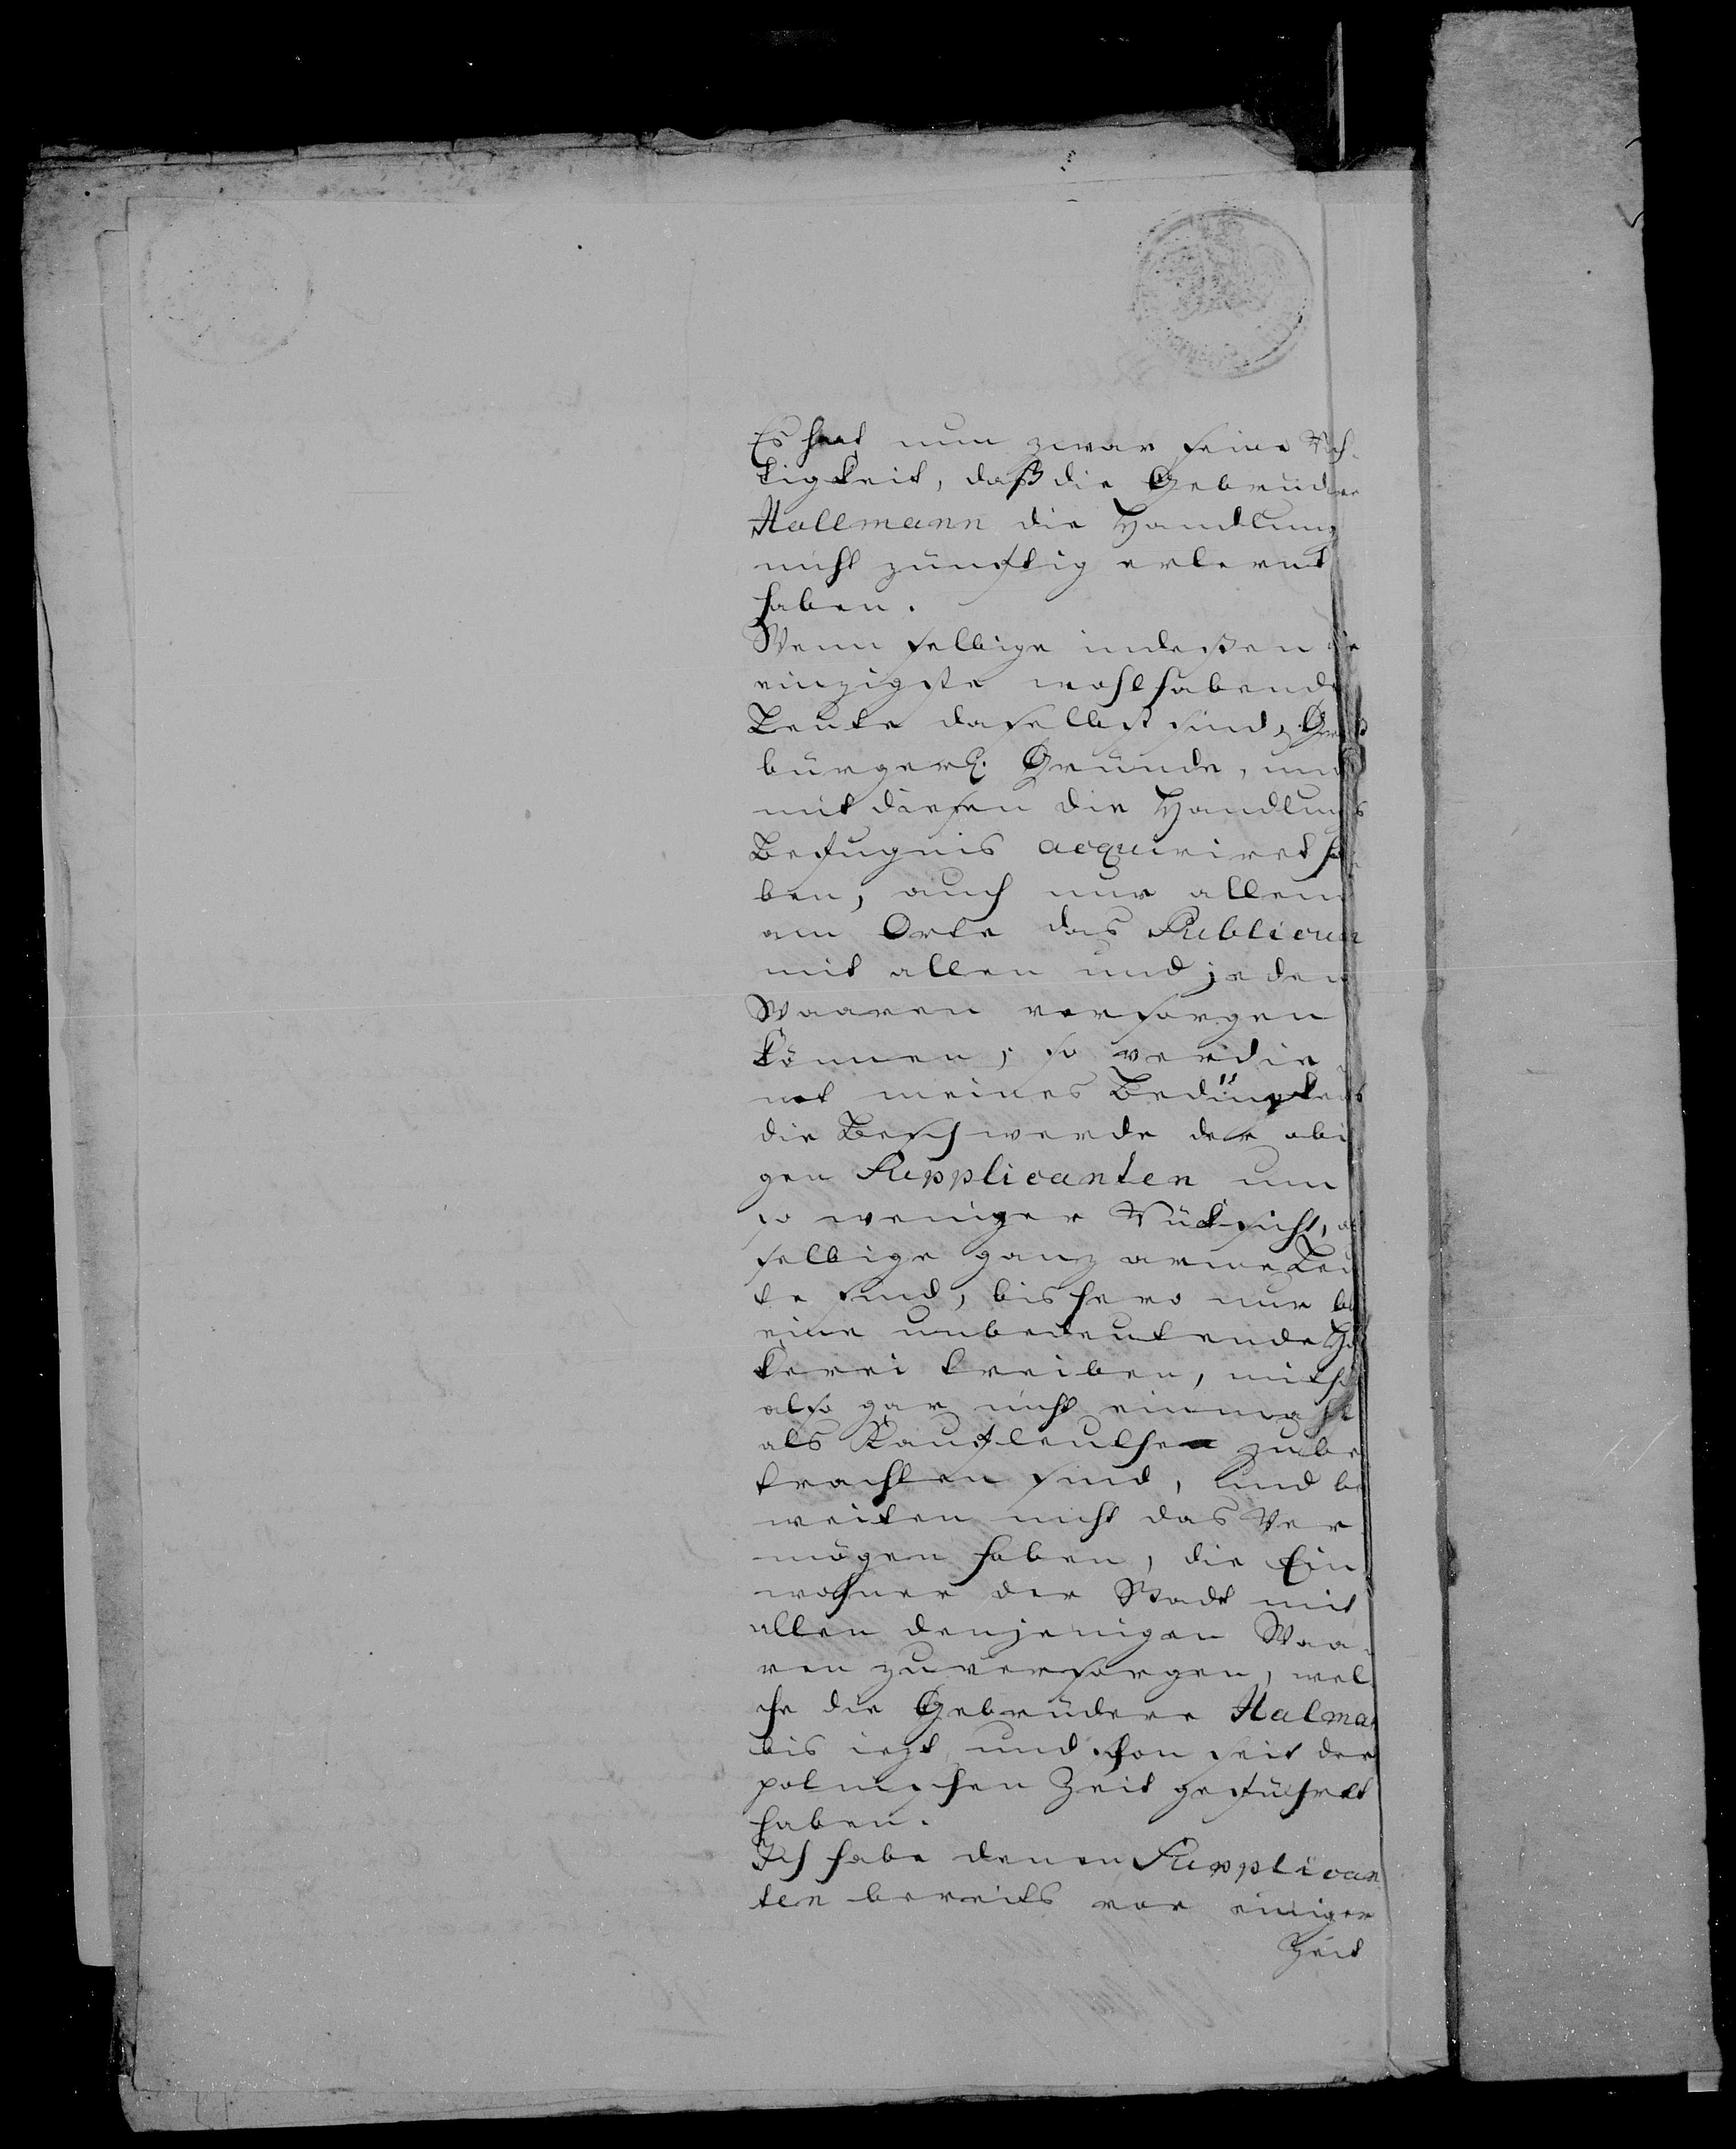 Es hat nun zwar seine Rich-
tigkeit, daß die Gebrüdere
Hallmann die Handlung
nicht zünftig erlernt
haben.
Wenn selbige indeßen die
einzigste wohlhabende
Leute daselbst sind, Groß
bürgerl. Gründe, und
mit diesen die Handlungs
Befugnis acquiriret ha
ben, auch nur allein
am Orte das Publicum
mit allen und jeden
Waaren versorgen
können; so verdie
net meines Bedünkens
die Beschwerde der obi
gen Supplicanten um
so weniger Rücksicht, als
selbige ganz arme Leu
te sind, bishero nur
eine unbedeutende Hö
kerei treiben, mithin
also gar nicht einmahl
als Kaufleuthe zu be
trachten sind, und bei
weiten nicht das Ver
mögen haben, die Ein
wohner der Stadt mit
allen denjenigen Waa-
ren zu versorgen, wel
che die Gebrüdere Halman
bis iezt und schon seit der
polnischen Zeit geführet
haben.
Ich habe denen Supplican
ten bereits vor einiger
Zeit